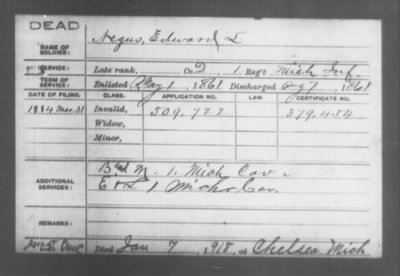 DEAD
NAME OF SOLDIER: Negus, Edward L
SERVICE: Late rank, Co. D, 1. Reg't Mich Inf.
TERM OF SERVICE: Enlisted May 1, 1861 Discharged Aug 7, 1861
DATE OF FILING. CLASS. APPLICATION NO. LAW. CERTIFICATE NO.
1884 Mar. 31 Invalid, 509.722 379.484
Widow,
Minor,
ADDITIONAL SERVICES: Bvt M. 1. Mich Cav.
E & L 1 Mich Cav.
REMARKS:
Died Jan 7, 1918, at Chelsea Mich